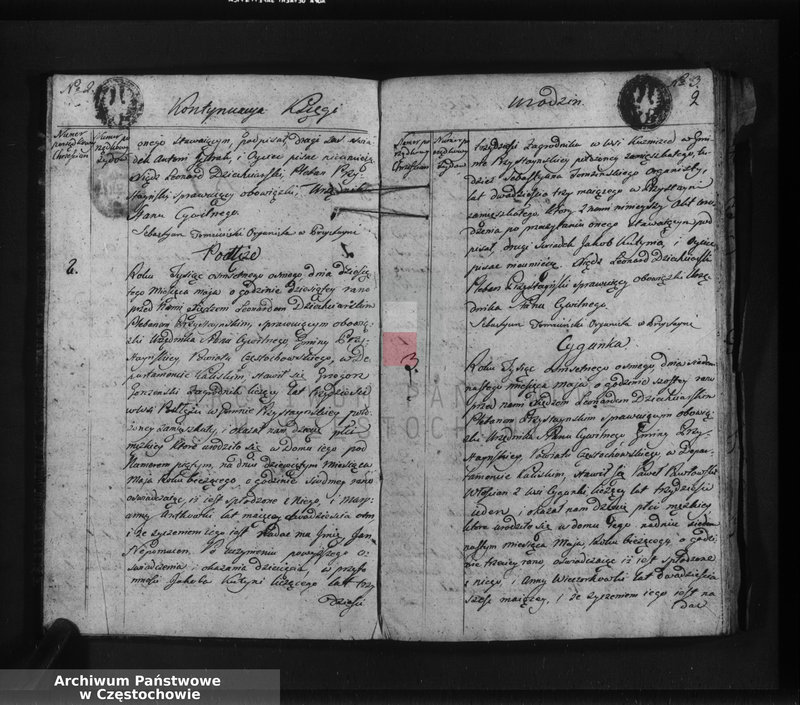 No 2.
Kontynuacya Księgi
Numer
porządkowy
Chrzesnion
Numer po
rządkowy
zydow
onego stawaiącym, podpisał, drugi zaś świa
dek Antoni i Oyciec pisać nieumieią
Xiądz Leonard Dziekciarski, Pleban Przy
staynski sprawuiący obowiązki Urzędnika
Stanu Cywilnego.
Sebastyan Tomzinski Organista w Przystayni
Podłęże
2.
Roku Tysiąc osmsetnego osmego dnia dziesią
tego Miesiąca maja o godzinie dziesiątey rano
przed Nami Xiędzem Leonardem Dziekciarskim
Plebanem Przystaynskim, sprawuiącym obowią
zki Urzędnika Stanu Cywilnego Gminy Przy
staynskiey Powiatu Częstochowskiego, w De
partamencie Kaliskim, stawił się Grzegorz
Zagrodnik liczący lat trzydzieści
we wsi Podłężu w Gminie Przystaynskiey poło
żoney zamieszkały, i okazał nam dziecię płci
męzkiey które urodziło się w Domu iego pod
Numerem piątym, na dniu dziewiątym miesiąca
Maja Roku bieżącego, o godzinie siódmey rano
oswiadczaiąc, iż iest spłodzone z Niego, i Mary
anny lat maiącey dwadzieścia
i że życzeniem iego iest Nadać mu Imię Jan
Nepomucen. Po uczynieniu powyższego o
świadczenia i okazaniu dziecięcia, w przyto
mności Jakóba Kutyni liczącego lat trzy
dzieści
No 3.
2
Urodzin
Numer po
rządkowy
Chrześcian
Numer po
rządkowy
zydow
trzydzieści Zagrodnika w wsi Kuźnicze w Gmi
nie Przystaynskiey położoney zamieszkałego, tu
dzież Sebastyana Tomzinskiego Organisty,
lat dwadzieścia trzy maiącego w Przystayni
zamieszkałego, który z nami ninieyszy Akt uro
dzenia po przeczytaniu onego stawaiącym pod
pisał, drugi świadek Jakob Kutynia, i Oyciec
pisać nieumieią. Xiądz Leonard Dziekciarski
Pleban Przystaynski sprawuiący obowiązki Urzę
dnika Stanu Cywilnego.
Sebastyan Tomzinski Organista w Przystayni
Cyganka
3.
Roku Tysiąc osmsetnego osmego, dnia siedem
nastego miesiąca Maja, o godzinie szostey rano
przed nami Xiędzem Leonardem Dziekciarskim
Plebanem Przystaynskim sprawuiącym obowią
zki Urzędnika Stanu Cywilnego Gminy Przy
staynskiey, Powiatu Częstochowskiego, w Depar
tamencie Kaliskim, stawił się Paweł
Włościan z wsi Cyganki liczący lat trzydzieści
ieden, i okazał nam dziecię płci męzkiey
które urodziło się w domu iego na dniu siedem
nastym miesiąca Maja, Roku bieżącego, o godzi
nie trzeciey rano, oswiadczaiąc iż iest spłodzone
z niego, i Anny Wieczorkowski lat dwadzieścia
sześć maiącey, i że życzeniem iego iest na
dać
Archiwum Państwowe
w Częstochowie